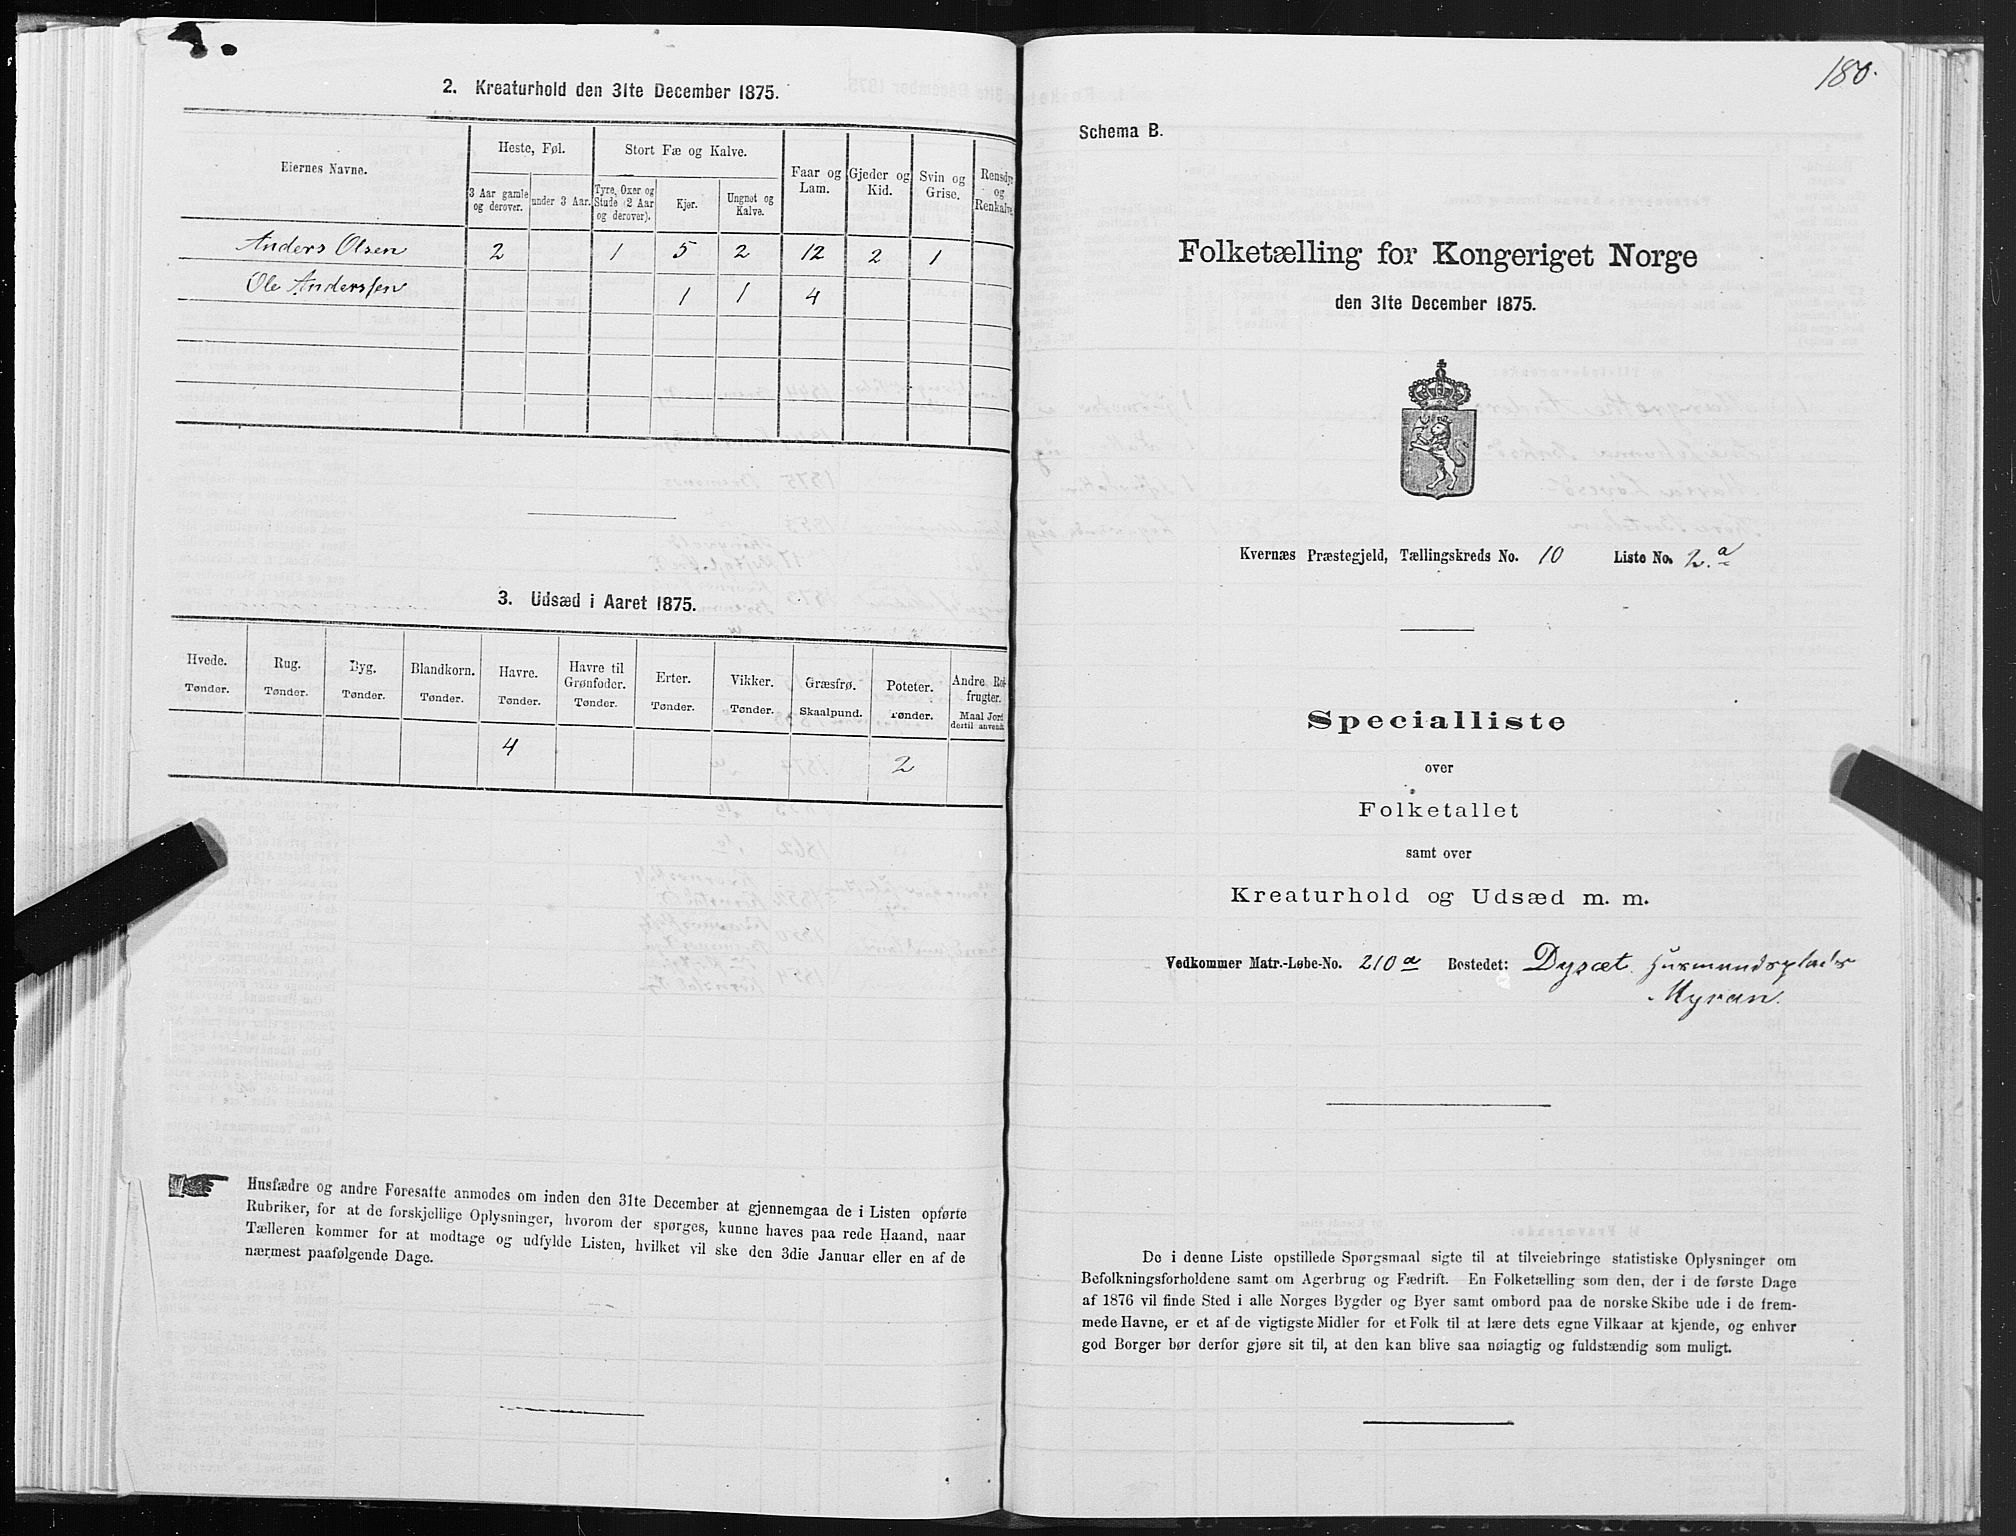 2. Kreaturhold den 31te December 1875.
Eiernes Navne.
Heste, Føl.
Stort Fæ og Kalve.
Faar og Lam.
Gjeder og Kid.
Svin og Grise.
Rensdyr og Renkalve.
3 Aar gamle og derover.
under 3 Aar.
Tyre, Oxer og Stude (2 Aar og derover).
Kjør.
Ungnøt og Kalve.
Anders Olsen 2 1 5 2 12 2 1
Ole Anderssen 1 1 4
3. Udsæd i Aaret 1875.
Hvede. Rug. Byg. Blandkorn. Havre. Havre til Grønfoder. Erter. Vikker. Græsfrø. Poteter. Andre Rodfrugter.
Tønder. Tønder. Tønder. Tønder. Tønder. Tønder. Tønder. Tønder. Skaalpund. Tønder. Maal Jord dertil anvendt
4 2
Husfædre og andre Foresatte anmodes om inden den 31te December at gjennemgaa de i Listen opførte
Rubriker, for at de forskjellige Oplysninger, hvorom der spørges, kunne haves paa rede Haand, naar
Tælleren kommer for at modtage og udfylde Listen, hvilket vil ske den 3die Januar eller en af de
nærmest paafølgende Dage.
180.
Schema B.
Folketælling for Kongeriget Norge
den 31te December 1875.
Kvernæs Præstegjeld, Tællingskreds No. 10 Liste No. 2.a
Specialliste
over
Folketallet
samt over
Kreaturhold og Udsæd m. m.
Vedkommer Matr.-Løbe-No. 210a Bostedet: Dysæt. Husmandsplads
Myran.
De i denne Liste opstillede Spørgsmaal sigte til at tilveiebringe statistiske Oplysninger om
Befolkningsforholdene samt om Agerbrug og Fædrift. En Folketælling som den, der i de første Dage
af 1876 vil finde Sted i alle Norges Bygder og Byer samt ombord paa de norske Skibe ude i de frem-
mede Havne, er et af de vigtigste Midler for et Folk til at lære dets egne Vilkaar at kjende, og enhver
god Borger bør derfor gjøre sit til, at den kan blive saa nøiagtig og fuldstændig som muligt.